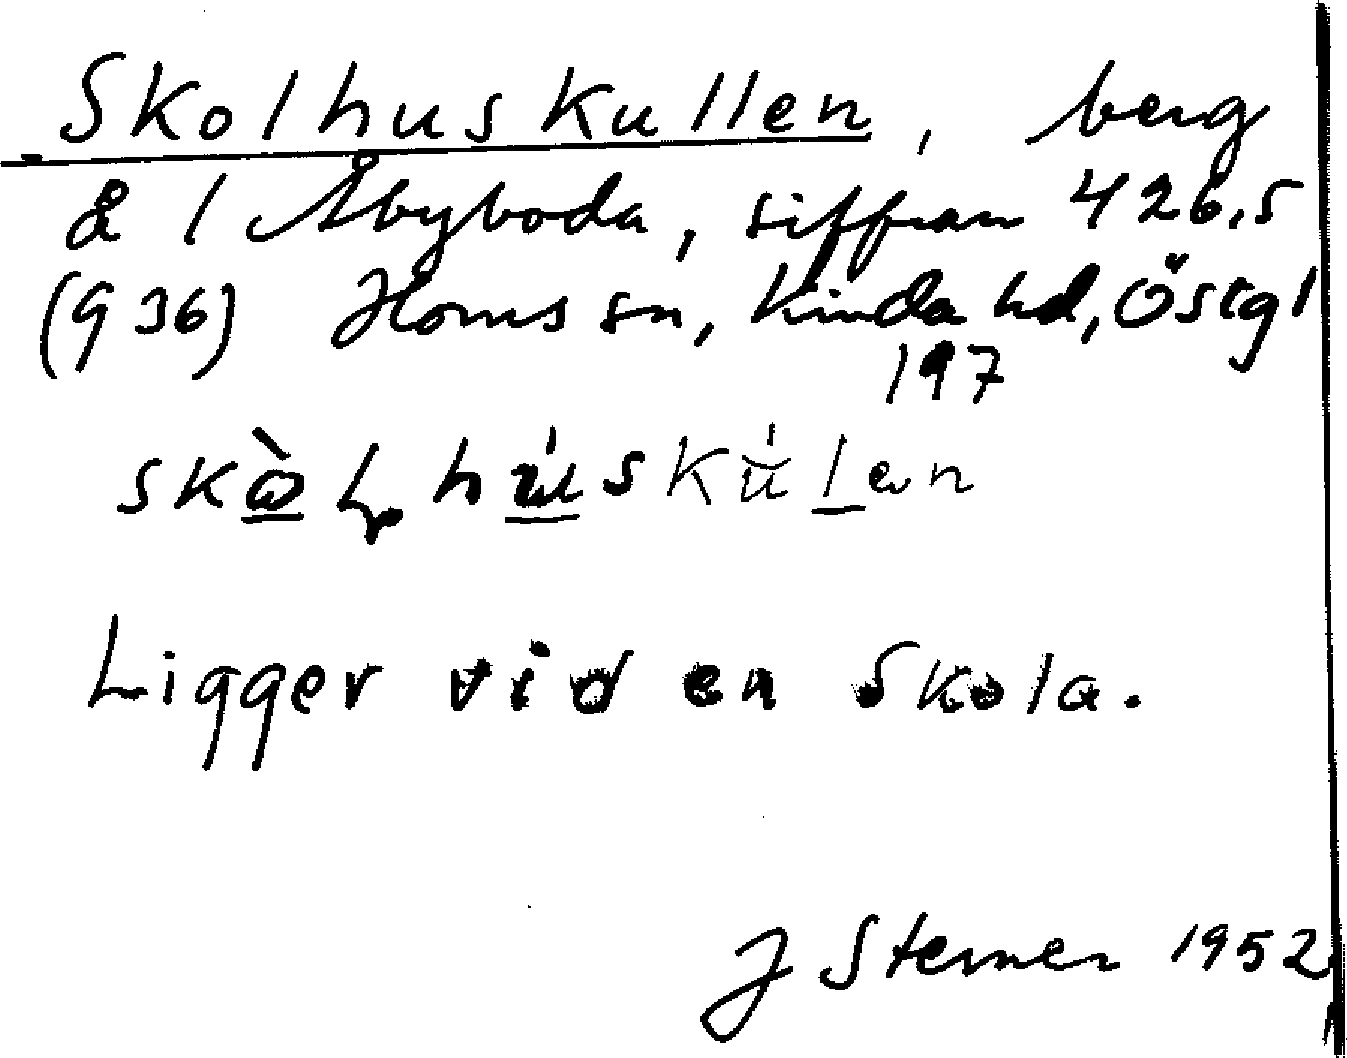 Skolhuskullen, berg
å 1 Åbyboda, siffran 426,5
(936) Horns sn, Kinda hd, Östgl
197
Ligger vid en skola.
J Sterner 1952